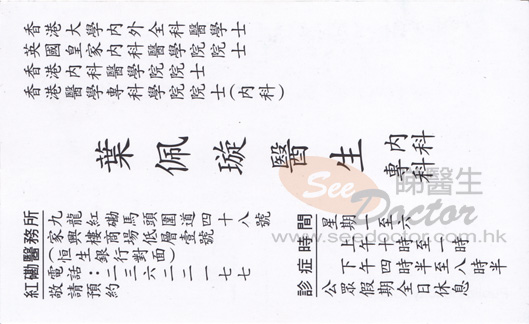 香港大學內外全科醫學士
英國皇家內科醫學院院士
香港內科醫學院院士
香港醫學專科學院院士(內科)
葉佩璇醫生
內科
專科
紅磡醫務所
九龍紅磡馬頭圍道四十八號
家興樓商場低層壹號
(恒生銀行對面)
電話：二三六二二一七七
敬請預約
診症時間
星期一至六
上午十時至一時
下午四時半至八時半
公眾假期全日休息
See 睇醫生
Doctor
www.seedoctor.com.hk